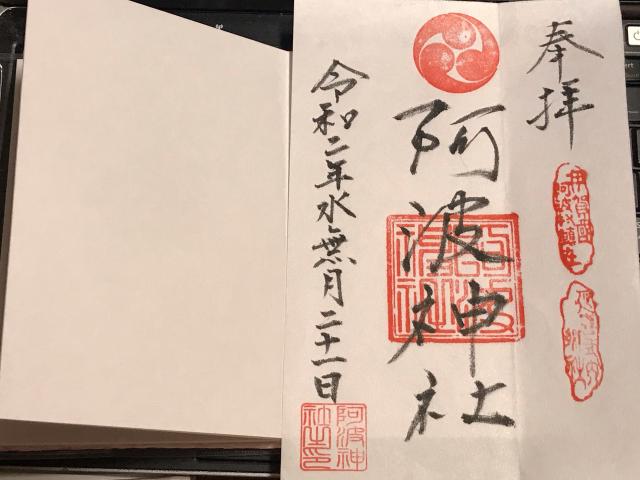 奉拝
阿波神社
阿波神社
令和二年水無月二十一日
阿波神
社之印